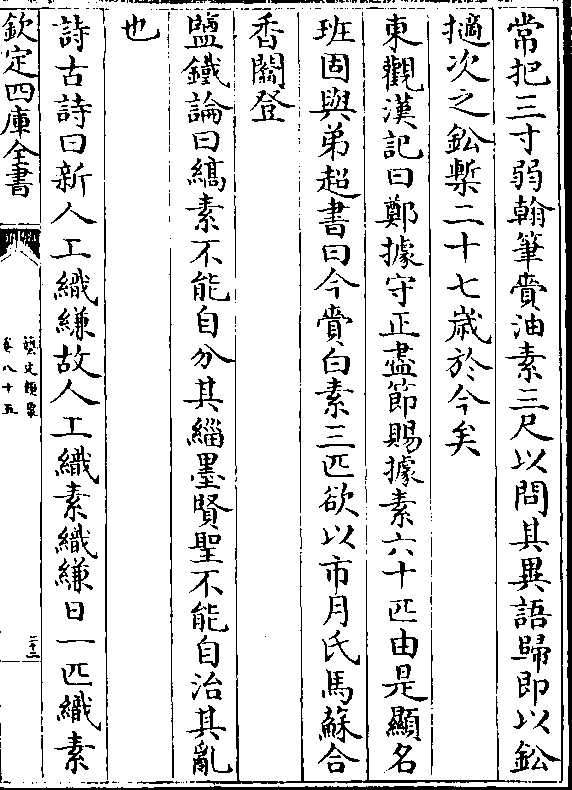 常把三寸弱翰筆賫油素三尺以問其異語歸即以鈆
擿次之鈆槧二十七歲於今矣
東觀漢記曰鄭據守正盡節賜據素六十匹由是顯名
班固與弟超書曰今賫白素三匹欲以市月氏馬蘇合
香闟登
鹽鐵論曰縞素不能自分其緇墨賢聖不能自治其亂
也
詩古詩曰新人工織縑故人工織素織縑日一匹織素
欽定四庫全書
藝文類聚
卷八十五
二十二